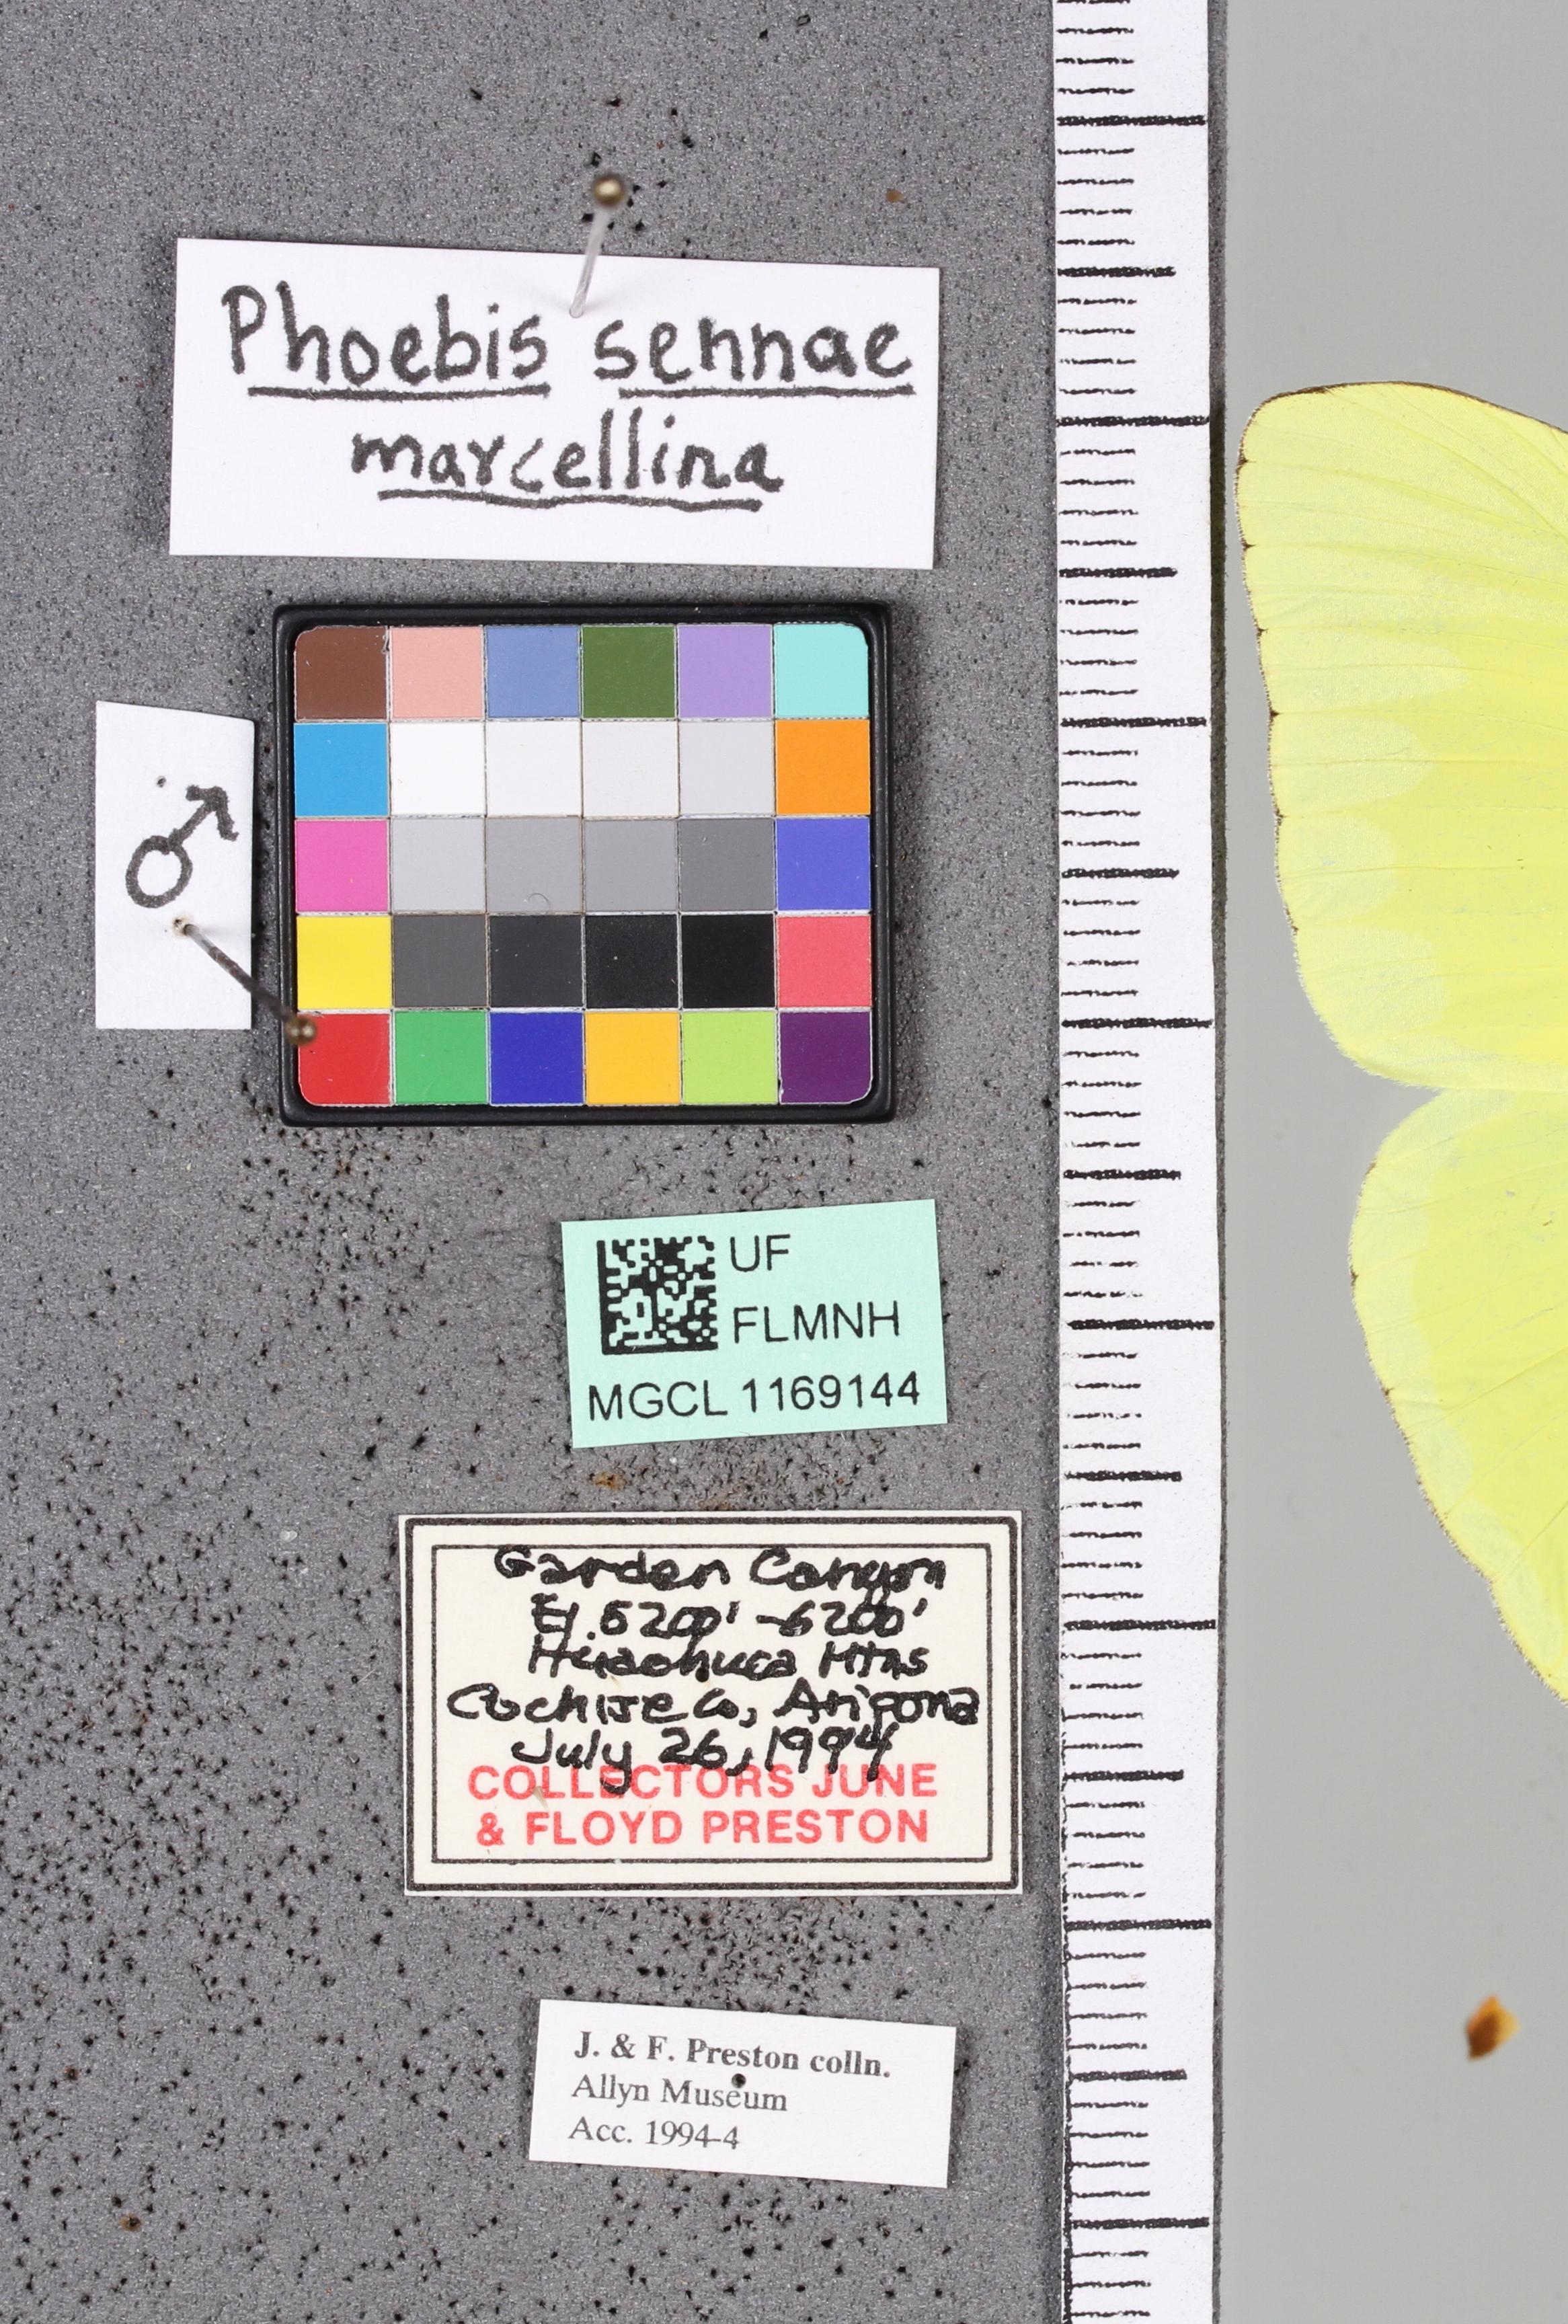 Phoebis sennae
marcellina
♂
UF
FLMNH
MGCL 1169144
Garden Canyon
El. 5200' - 6200'
Huachuca Mtns
Cochise Co, Arizona
July 26, 1994
COLLECTORS JUNE
& FLOYD PRESTON
J. & F. Preston colln.
Allyn Museum
Acc. 1994-4